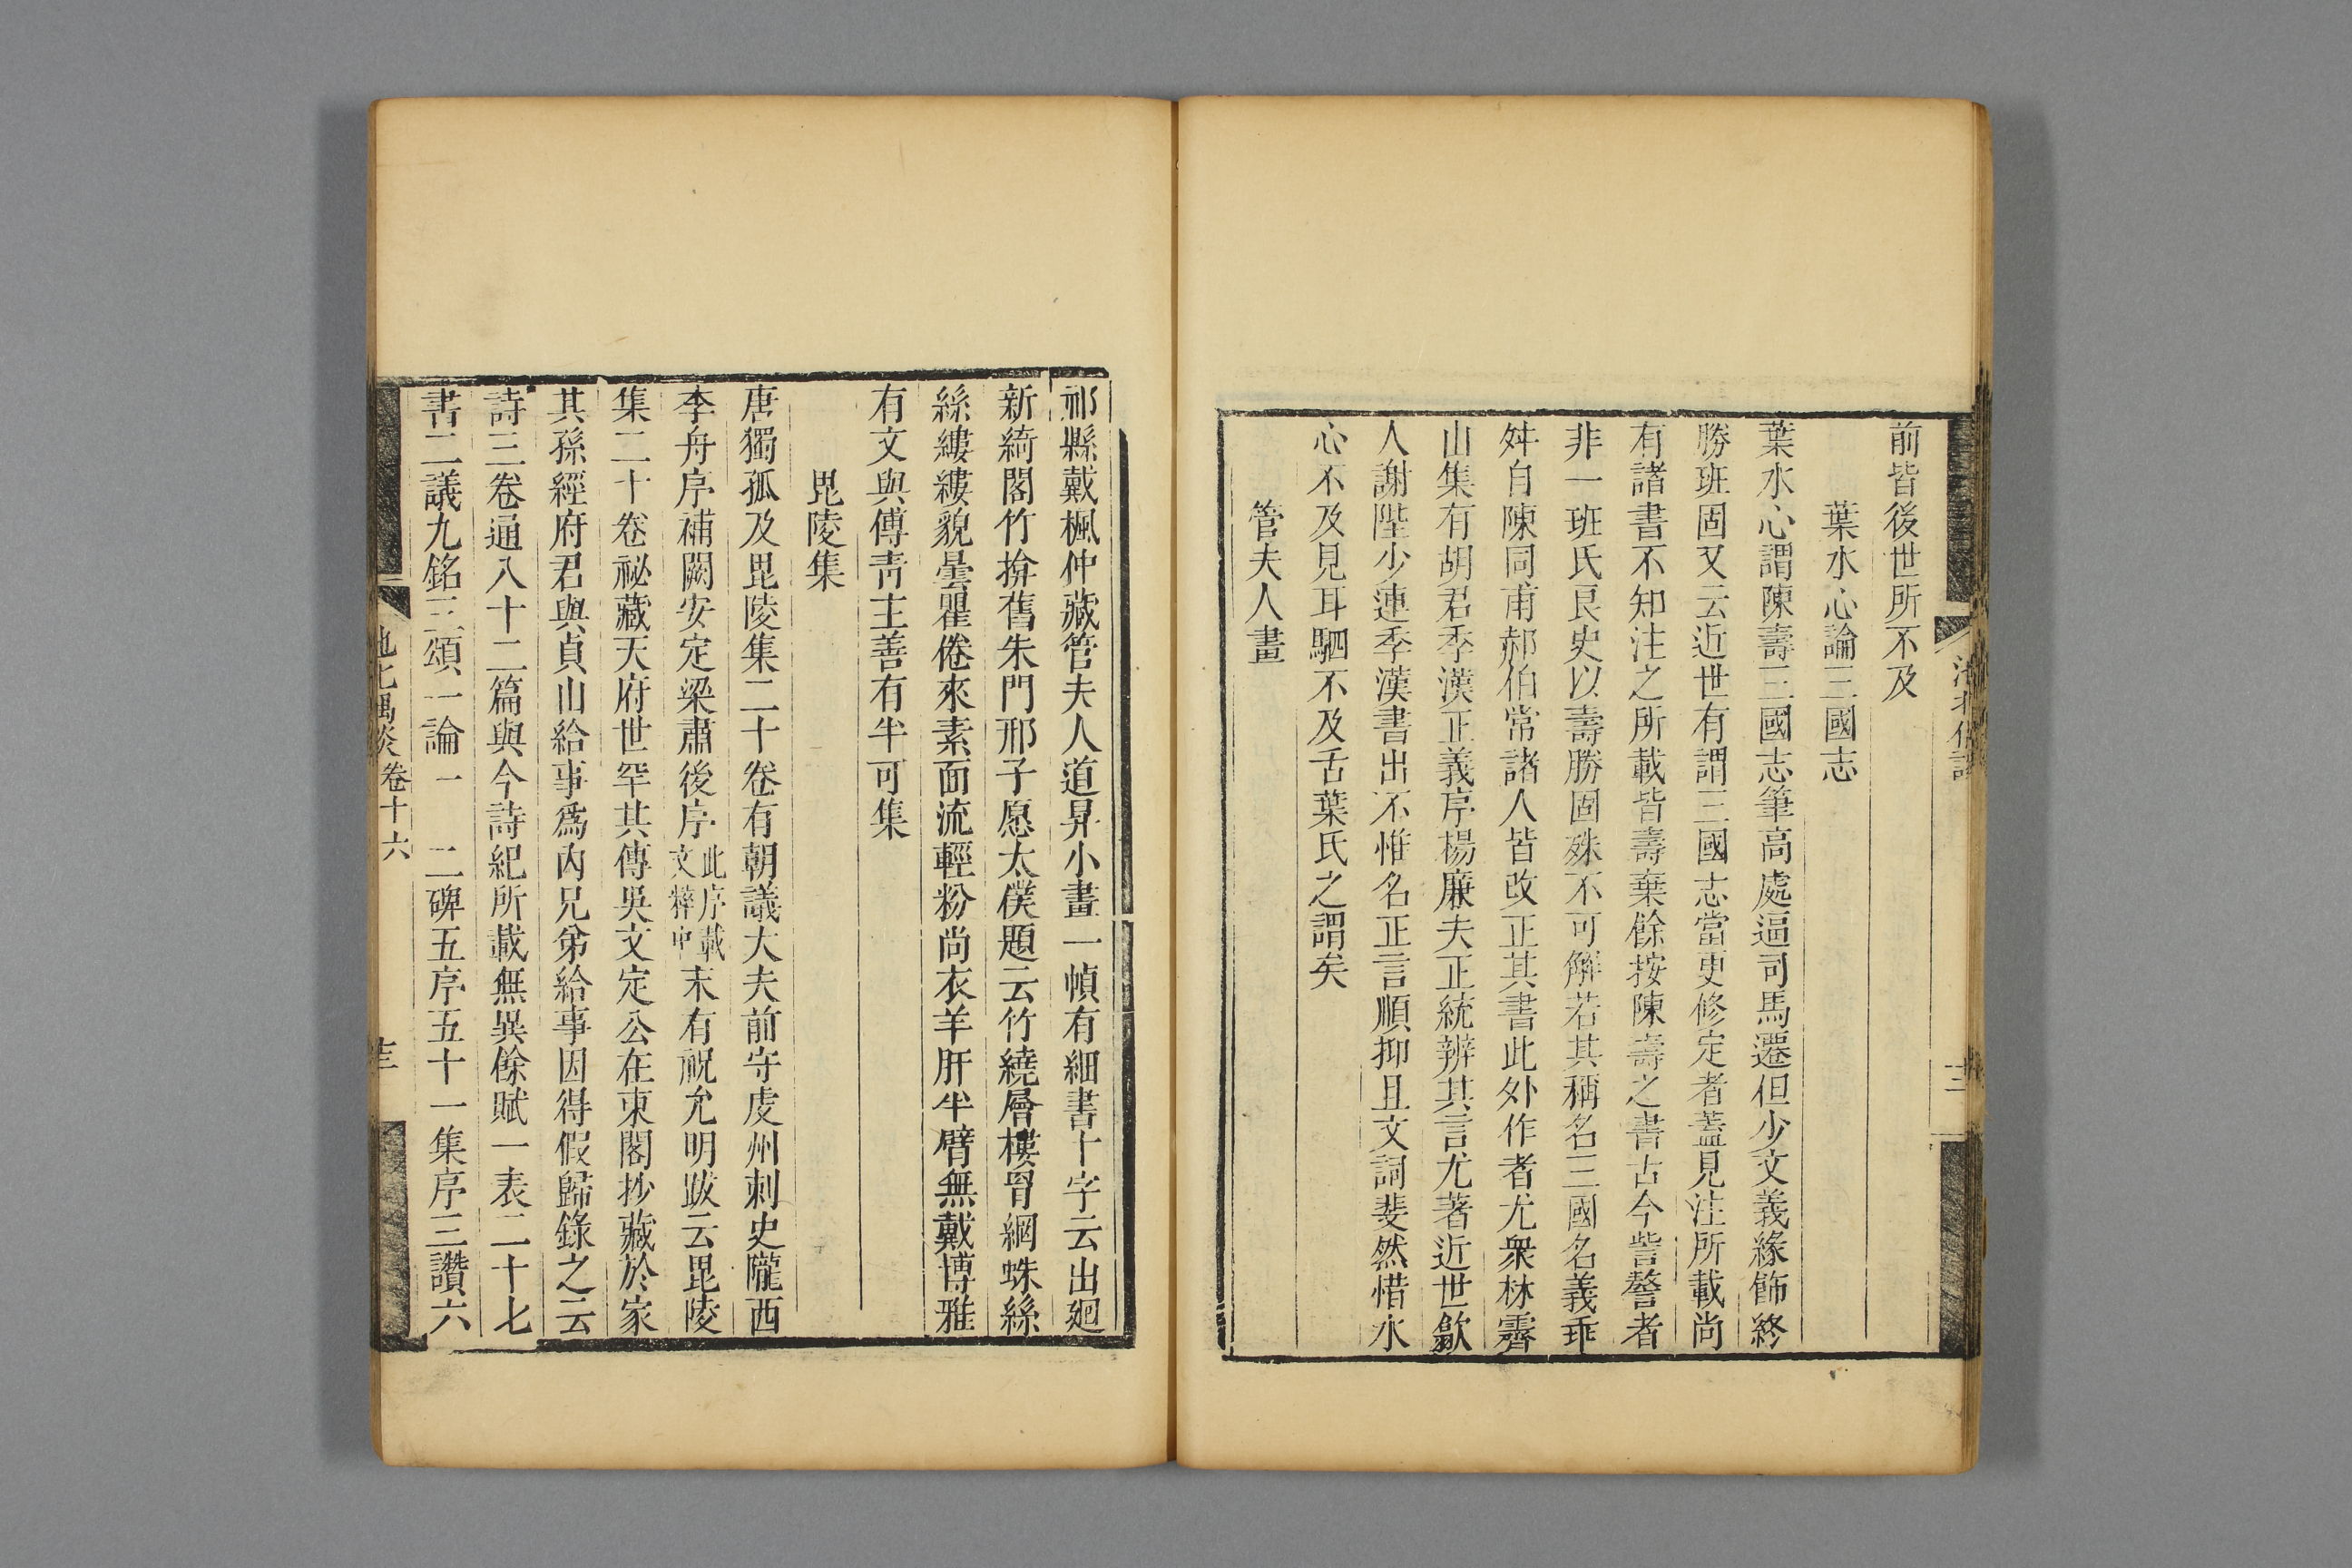 前皆後世所不及
葉水心論三國志
葉水心謂陳壽三國志筆高處逼司馬遷但少文義緣飾終
勝班固又云近世有謂三國志當更修定者蓋見注所載尚
有諸書不知注之所載皆壽棄餘按陳壽之書古今訾謷者
非一班氏良史以壽勝固殊不可解若其稱名三國名義乖
舛自陳同甫郝伯常諸人皆改正其書此外作者尤衆林霽
山集有胡君季漢正義序楊廉夫正統辨其言尤著近世歙
人謝陛少連季漢書出不惟名正言順抑且文詞斐然惜水
心不及見耳駟不及舌葉氏之謂矣
管夫人畫
祁縣戴楓仲藏管夫人道昇小畫一幀有細書十字云出廻
新綺閣竹揜舊朱門邢子愿太僕題云竹繞層樓罥綱蛛絲
絲縷縷貌曇瞿倦來素面流輕粉尚衣羊肝半臂無戴博雅
有文與傅靑主善有半可集
毘陵集
唐獨孤及毘陵集二十卷有朝議大夫前守虔州刺史隴西
李舟序補闕安定梁肅後序此序載文粹中末有祝允明跋云毘陵
集二十卷祕藏天府世罕其傳吳文定公在東閣抄藏於家
其孫經府君與貞山給事爲內兄弟給事因得假歸錄之云
詩三卷通八十二篇與今詩紀所載無異餘賦一表二十七
書二議九銘三頌一論一 二碑五序五十一集序三讚六
卷十六